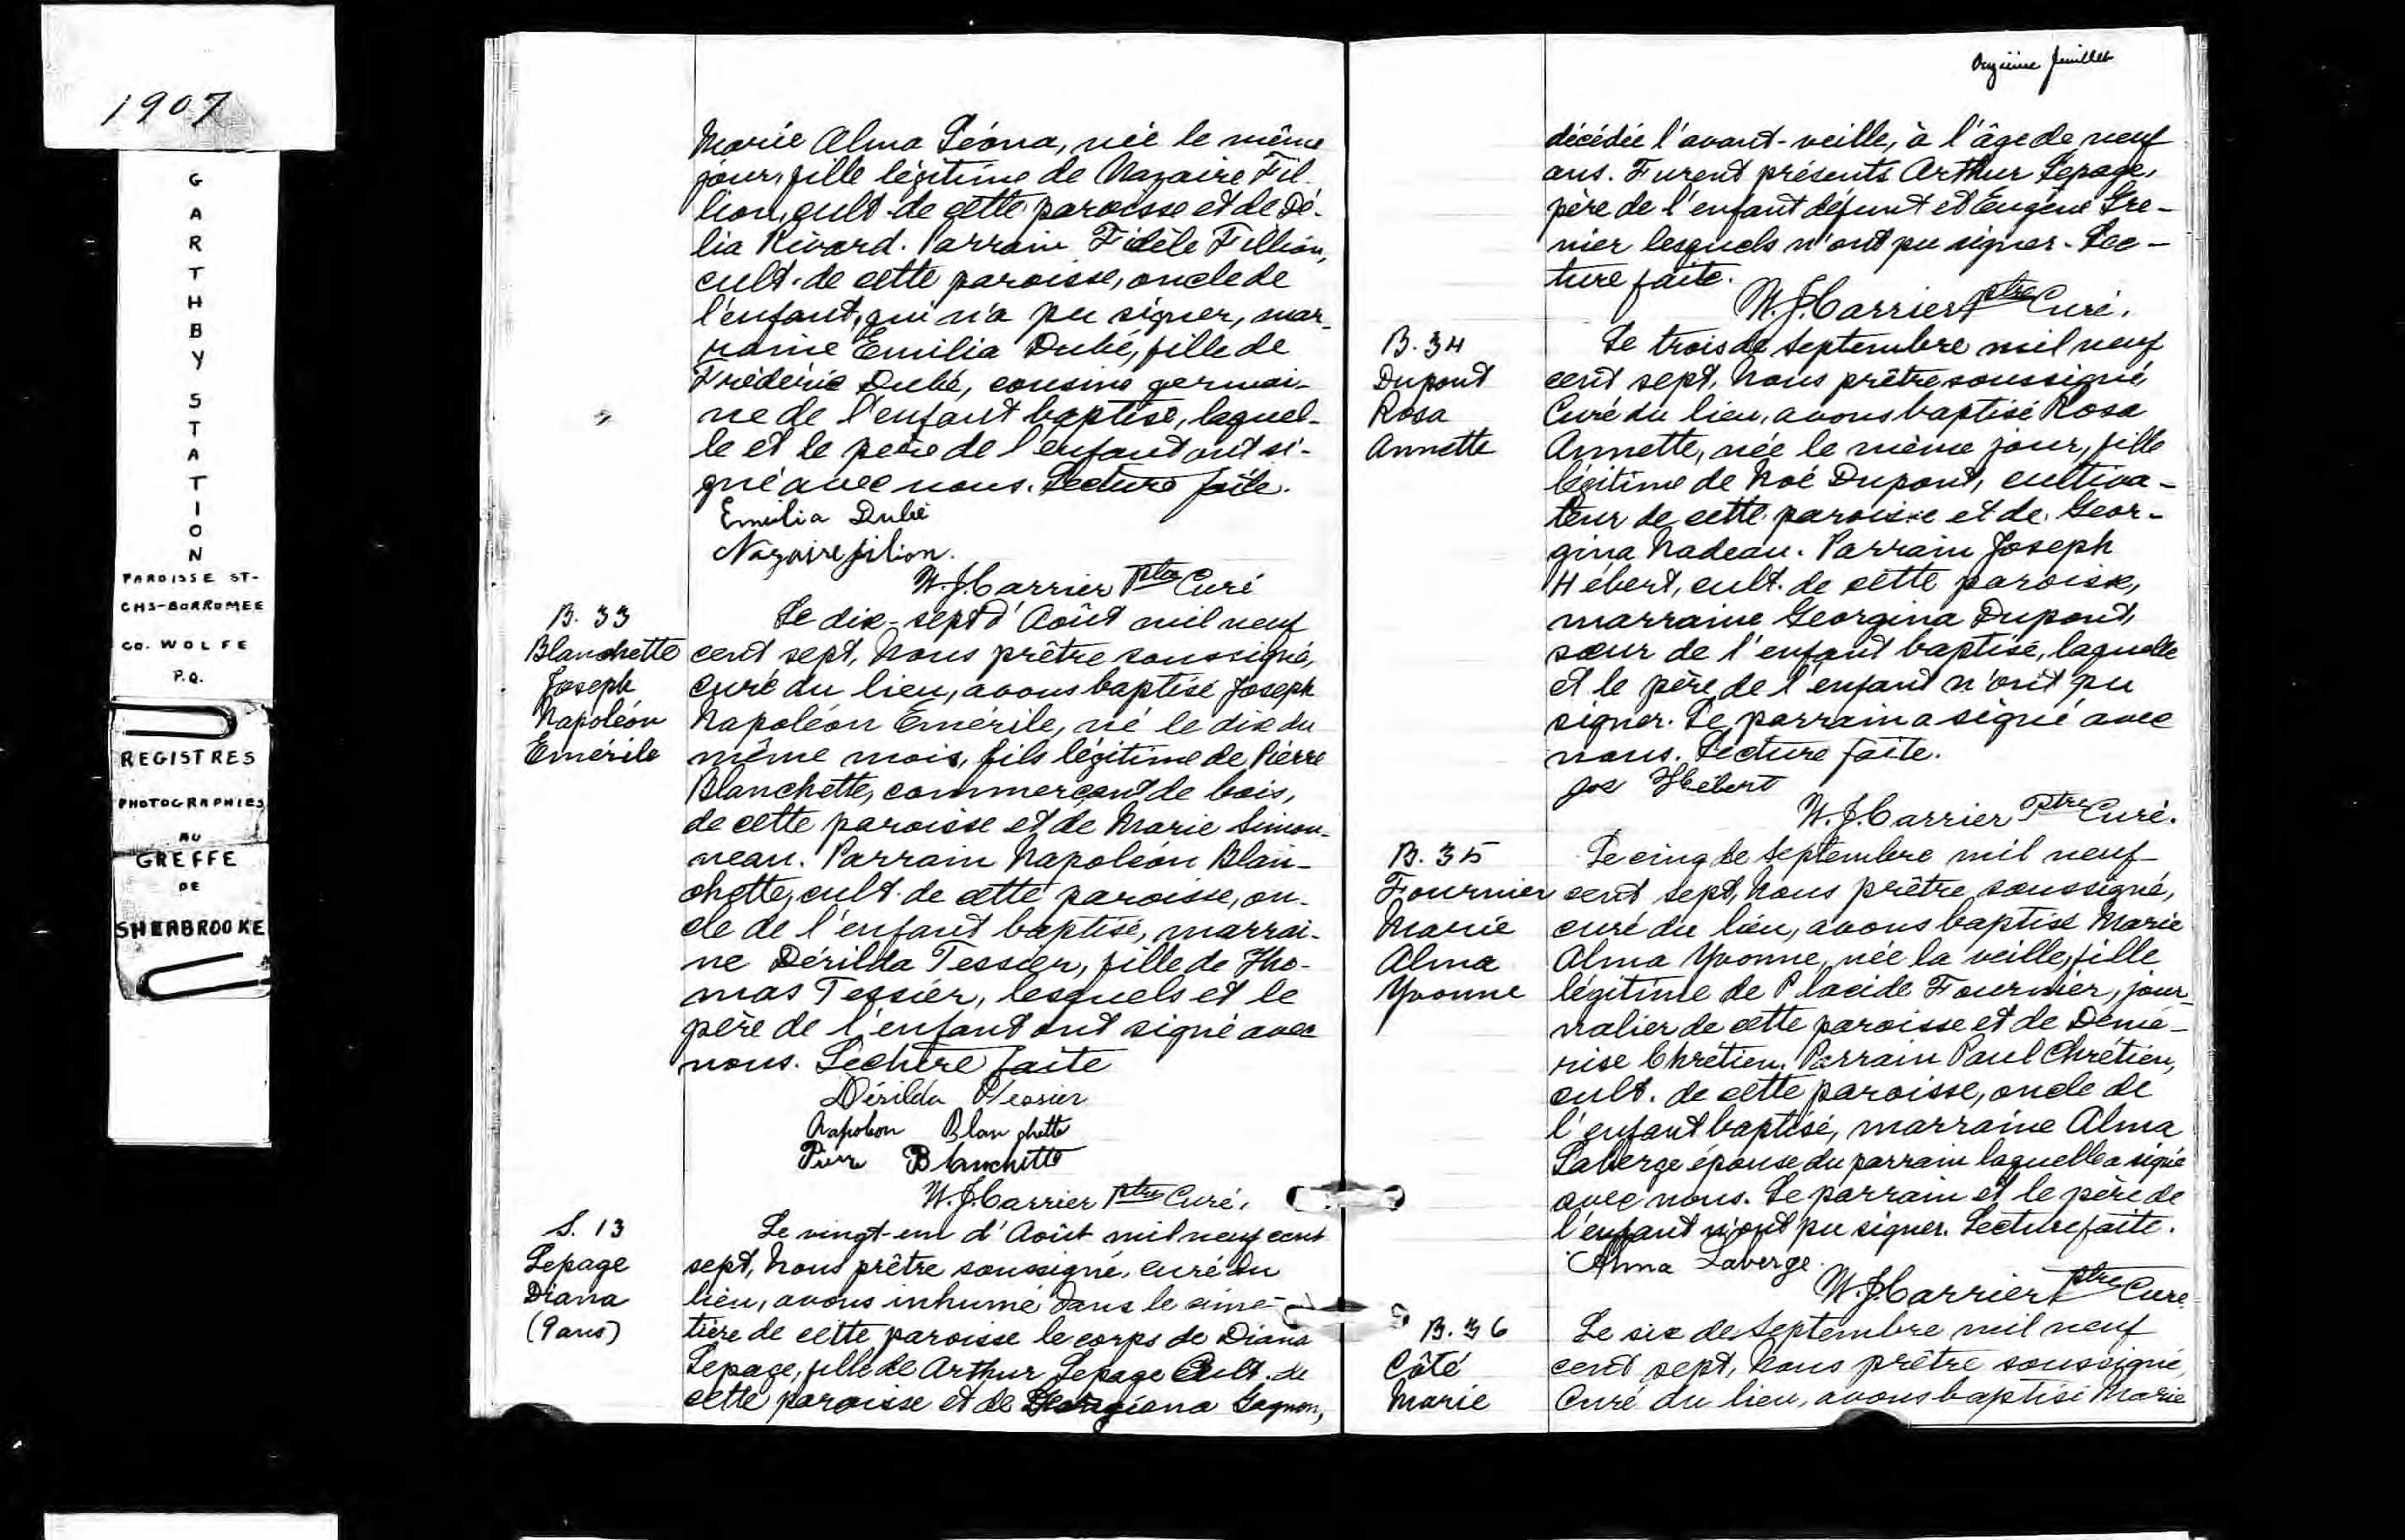 1907
GARTHBY STATION
PAROISSE ST-
CHS-BORROMEE
CO. WOLFE
P.Q.
REGISTRES
PHOTOGRAPHIES
AU
GREFFE
DE
SHERBROOKE
Marie Alma Léona, née le même
jour, fille légitime de Nazaire Fil-
lion, cult. de cette paroisse et de Dé-
lia Rivard. Parrain Fidèle Fillion,
cult. de cette paroisse, oncle de
l'enfant, qui n'a pu signer, mar-
raine Emilia Dubé, fille de
Frédéric Dubé, cousine germai-
ne de l'enfant baptisé, laquel-
le et le père de l'enfant ont si-
gné avec nous. Lecture faite.
Emilia Dubé
Nazaire filion.
W. J. Carrier Ptre Curé
B. 33
Blanchette
Joseph
Napoléon
Emérile
Le dix-sept d'Août mil neuf
cent sept, Nous prêtre soussigné,
curé du lieu, avons baptisé Joseph
Napoléon Emérile, né le dix du
même mois, fils légitime de Pierre
Blanchette, commerçant de bois,
de cette paroisse et de Marie Simon-
neau. Parrain Napoléon Blan-
chette, cult. de cette paroisse, on-
cle de l'enfant baptisé, marrai-
ne Dérilda Tessier, fille de Tho-
mas Tessier, lesquels et le
père de l'enfant ont signé avec
nous. Lecture faite
Dérilda Tessier
Napoleon Blanchette
Pierre Blanchette
W. J. Carrier Ptre Curé.
S. 13
Lepage
Diana
(9 ans)
Le vingt-un d'Août mil neuf cent
sept, Nous prêtre soussigné, curé du
lieu, avons inhumé dans le cime-
tière de cette paroisse le corps de Diana
Lepage, fille de Arthur Lepage Cult. de
cette paroisse et de Georgiana Gagnon,
Onzième feuillet
décédée l'avant-veille, à l'âge de neuf
ans. Furent présents Arthur Lepage,
père de l'enfant défunt et Eugène Gre-
nier lesquels n'ont pu signer. Lec-
ture faite.
W. J. Carrier Ptre Curé.
B. 34
Dupont
Rosa
Annette
Le trois de Septembre mil neuf
cent sept, Nous prêtre soussigné,
Curé du lieu, avons baptisé Rosa
Annette, née le même jour, fille
légitime de Noé Dupont, cultiva-
teur de cette paroisse et de Geor-
gina Nadeau. Parrain Joseph
Hébert, cult. de cette paroisse,
marraine Georgina Dupont,
sœur de l'enfant baptisé, laquelle
et le père de l'enfant n'ont pu
signer. Le parrain a signé avec
nous. Lecture faite.
Jos Hébert
W. J. Carrier Ptre Curé.
B. 35
Fournier
Marie
Alma
Yvonne
Le cinq de Septembre mil neuf
cent sept, Nous prêtre soussigné,
curé du lieu, avons baptisé Marie
Alma Yvonne, née la veille, fille
légitime de Placide Fournier, jour-
nalier de cette paroisse et de Démé-
rise Chrétien. Parrain Paul Chrétien,
cult. de cette paroisse, oncle de
l'enfant baptisé, marraine Alma
Laberge épouse du parrain laquelle a signé
avec nous. Le parrain et le père de
l'enfant n'ont pu signer. Lecture faite.
Alma Laberge.
W. J. Carrier Ptre Curé
B. 36
Côté
Marie
Le six de Septembre mil neuf
cent sept, Nous prêtre soussigné,
Curé du lieu, avons baptisé Marie